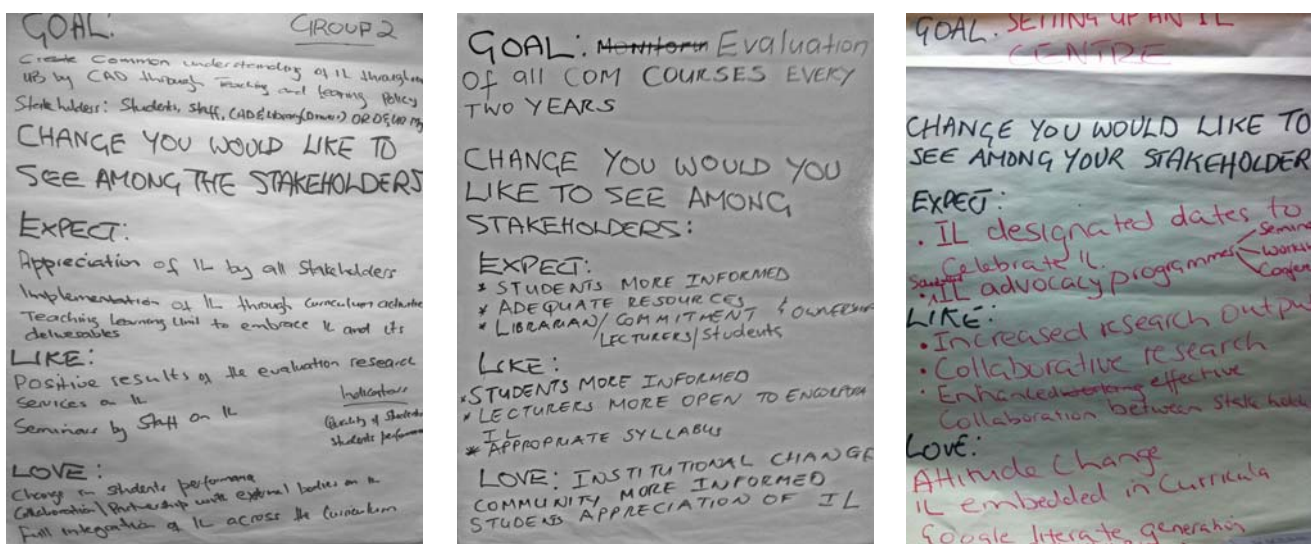 GOAL: GROUP 2
Create Common understanding of IL throughout
UB by CAD through Teaching and Learning Policy
Stakeholders: Students, Staff, CAD & Library (Driver) OR
CHANGE YOU WOULD LIKE TO
SEE AMONG THE STAKEHOLDERS
EXPECT:
Appreciation of IL by all Stakeholders
Implementation of IL through Curriculum
Teaching Learning Unit to embrace IL and its
deliverables
LIKE:
Positive results of the evaluation research
Services on IL
Seminars by Staff on IL
Indicators
Quality of
Students
LOVE:
Change in students performance
Collaboration/Partnership with external bodies on IL
Full integration of IL across the Curriculum
GOAL: Evaluation
Of all COM COURSES EVERY
TWO YEARS
CHANGE YOU WOULD YOU
LIKE TO SEE AMONG
STAKEHOLDERS:
EXPECT:
* STUDENTS MORE INFORMED
* ADEQUATE RESOURCES
* LIBRARIAN/COMMITMENT &
LECTURERS/Students
LIKE:
* STUDENTS MORE INFORMED
* LECTURERS MORE OPEN TO
IL
* APPROPRIATE SYLLABUS
LOVE: INSTITUTIONAL CHANGE
COMMUNITY MORE INFORMED
STUDENTS APPRECIATION OF IL
GOAL: SETTING UP AN IL
CENTRE
CHANGE YOU WOULD LIKE TO
SEE AMONG YOUR STAKEHOLDER
EXPECT:
• IL designated dates to
Celebrate IL
• IL advocacy programmes
LIKE:
• Increased research Outpu
• Collaborative research
• Enhanced effective
Collaboration between Stake
LOVE:
Attitude Change
IL embedded in Curricula
Google literate generation